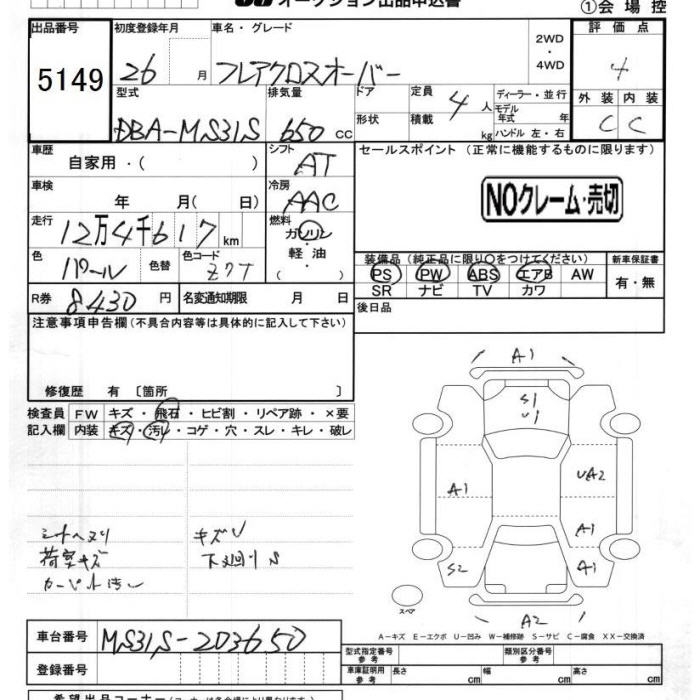 オークション出品申込書
①会場控
出品番号 初度登録年月 車名・グレード 2WD・4WD 評価点
5149 26 月 フレアクロスオーバー 4
型式 排気量 ドア 定員 4人 ディーラー・並行 外装 内装
DBA-MS31S 650 cc 形状 積載 kg モデル年式 年 ハンドル 左・右 C C
車歴 シフト セールスポイント (正常に機能するものに限ります)
自家用・( ) AT
車検 冷房 NOクレーム・売切
年 月( 日) AAC
走行 燃料
12万4千617 km ガソリン・軽油・( )
色 色替 色コード 装備品 (純正品に限り○をつけてください) 新車保証書
パール Z7T PS PW ABS エアB AW 有・無
SR ナビ TV カワ
R券 8430 円 名変通知期限 月 日 後日品
注意事項申告欄(不具合内容等は具体的に記入して下さい)
修復歴 有 〔箇所 〕
検査員 FW キズ・飛石・ヒビ割・リペア跡・×要
記入欄 内装 キズ・汚レ・コゲ・穴・スレ・キレ・破レ
A1
S1
U1
A1 UA2
A1
S2 A1
スペア
A2
キズU
荷室キズ 下廻りS
カーペット汚レ
A-キズ E-エクボ U-凹み W-補修跡 S-サビ C-腐食 XX-交換済
車台番号 MS31S-203650
型式指定番号参考 類別区分番号参考
登録番号 車庫証明用参考 長さ cm 幅 cm 高さ cm
希望出品コーナー